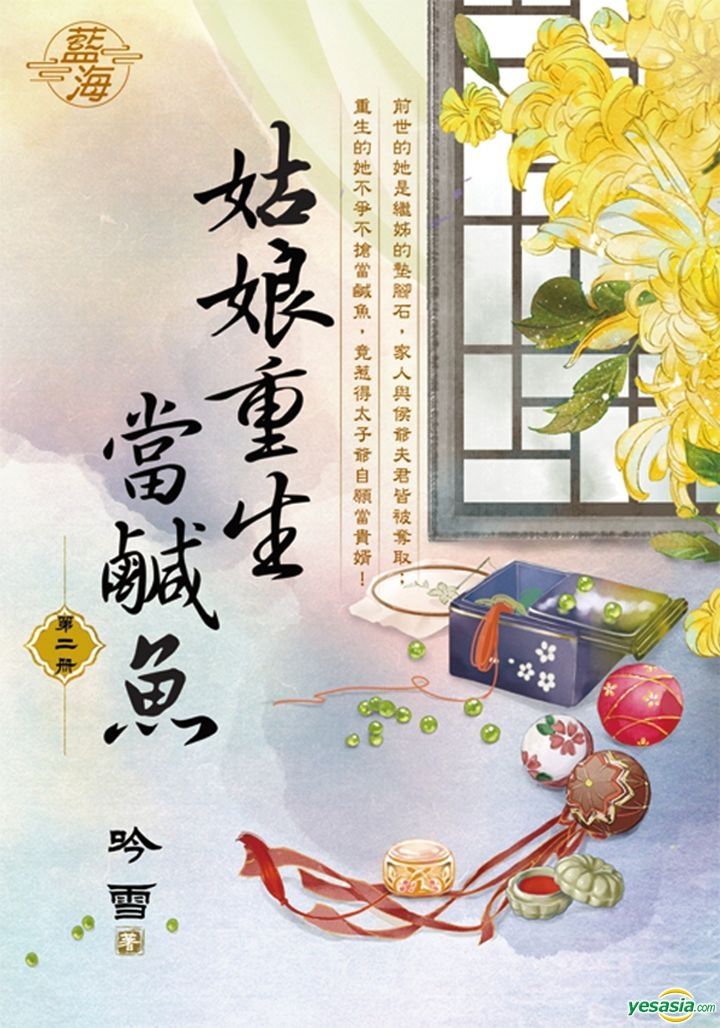 藍海
前世的她是繼姊的墊腳石，家人與侯爺夫君皆被奪取，
重生的她不爭不搶當鹹魚，竟惹得太子爺自願當貴婿！
姑娘重生
當鹹魚
第二册
吟雪 著
yesasia.com